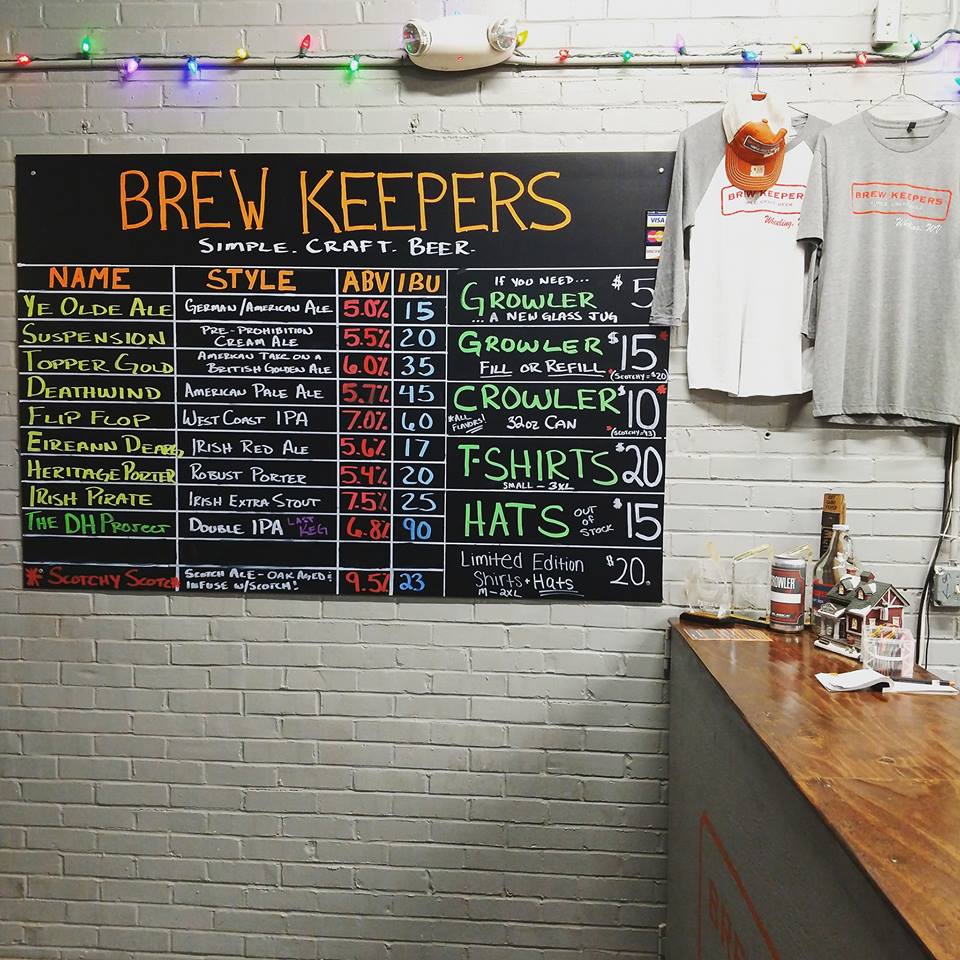 BREW KEEPERS
SIMPLE. CRAFT. BEER.
VISA
NAME STYLE ABV IBU
YE OLDE ALE GERMAN/AMERICAN ALE 5.0% 15
SUSPENSION PRE-PROHIBITION CREAM ALE 5.5% 20
TOPPER GOLD AMERICAN TAKE ON A BRITISH GOLDEN ALE 6.0% 35
DEATHWIND AMERICAN PALE ALE 5.7% 45
FLIP FLOP WEST COAST IPA 7.0% 60
EIREANN DEARG IRISH RED ALE 5.6% 17
HERITAGE PORTER ROBUST PORTER 5.4% 20
IRISH PIRATE IRISH EXTRA STOUT 7.5% 25
THE DH PROJECT DOUBLE IPA LAST KEG 6.8% 90
* SCOTCHY SCOTCH SCOTCH ALE - OAK AGED & INFUSE W/SCOTCH! 9.5% 23
IF YOU NEED...
GROWLER $5
...A NEW GLASS JUG
GROWLER $15*
FILL OR REFILL *(SCOTCHY=$20)
CROWLER $10*
*ALL FLAVORS! 32oz CAN
T-SHIRTS $20
SMALL - 3XL
HATS OUT OF STOCK $15
Limited Edition
Shirts + Hats $20.
M - 2XL
BREW KEEPERS
Wheeling,
BREW KEEPERS
Wheeling, WV